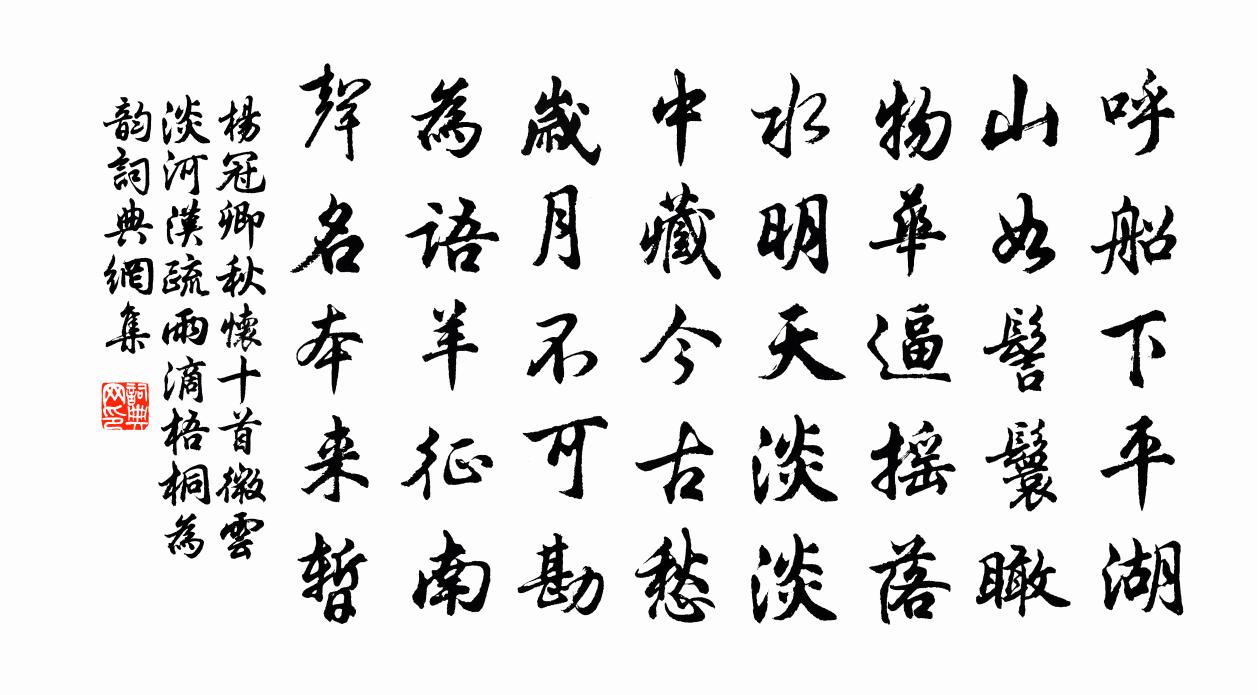 呼船下平湖
山如髻鬟瞰
物華逼摇落
水明天淡淡
中藏今古愁
歲月不可勘
為語羊征南
聲名本来暫
楊冠卿秋懷十首微雲
淡河漢疏雨滴梧桐為
韵詞典網集
詞典网印